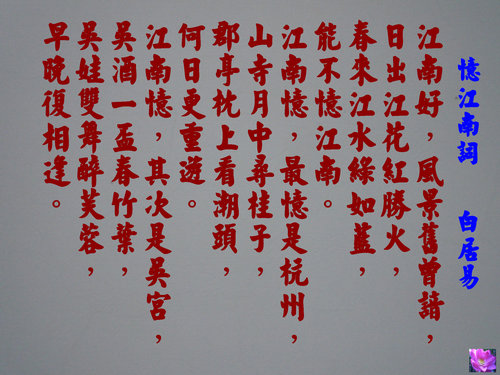 憶江南詞 白居易
江南好，風景舊曾諳，
日出江花紅勝火，
春來江水綠如藍，
能不憶江南。
江南憶，最憶是杭州，
山寺月中尋桂子，
郡亭枕上看潮頭，
何日更重遊。
江南憶，其次是吳宮，
吳酒一盃春竹葉，
吳娃雙舞醉芙蓉，
早晚復相逢。